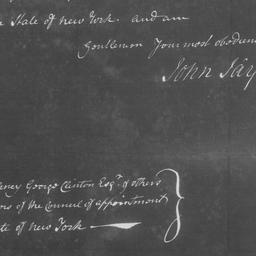 State of New York. and am
Gentlemen Your most obedien
John Jay
ency George Clinton Esqr. & others
ors of the Council of appointment
te of New York